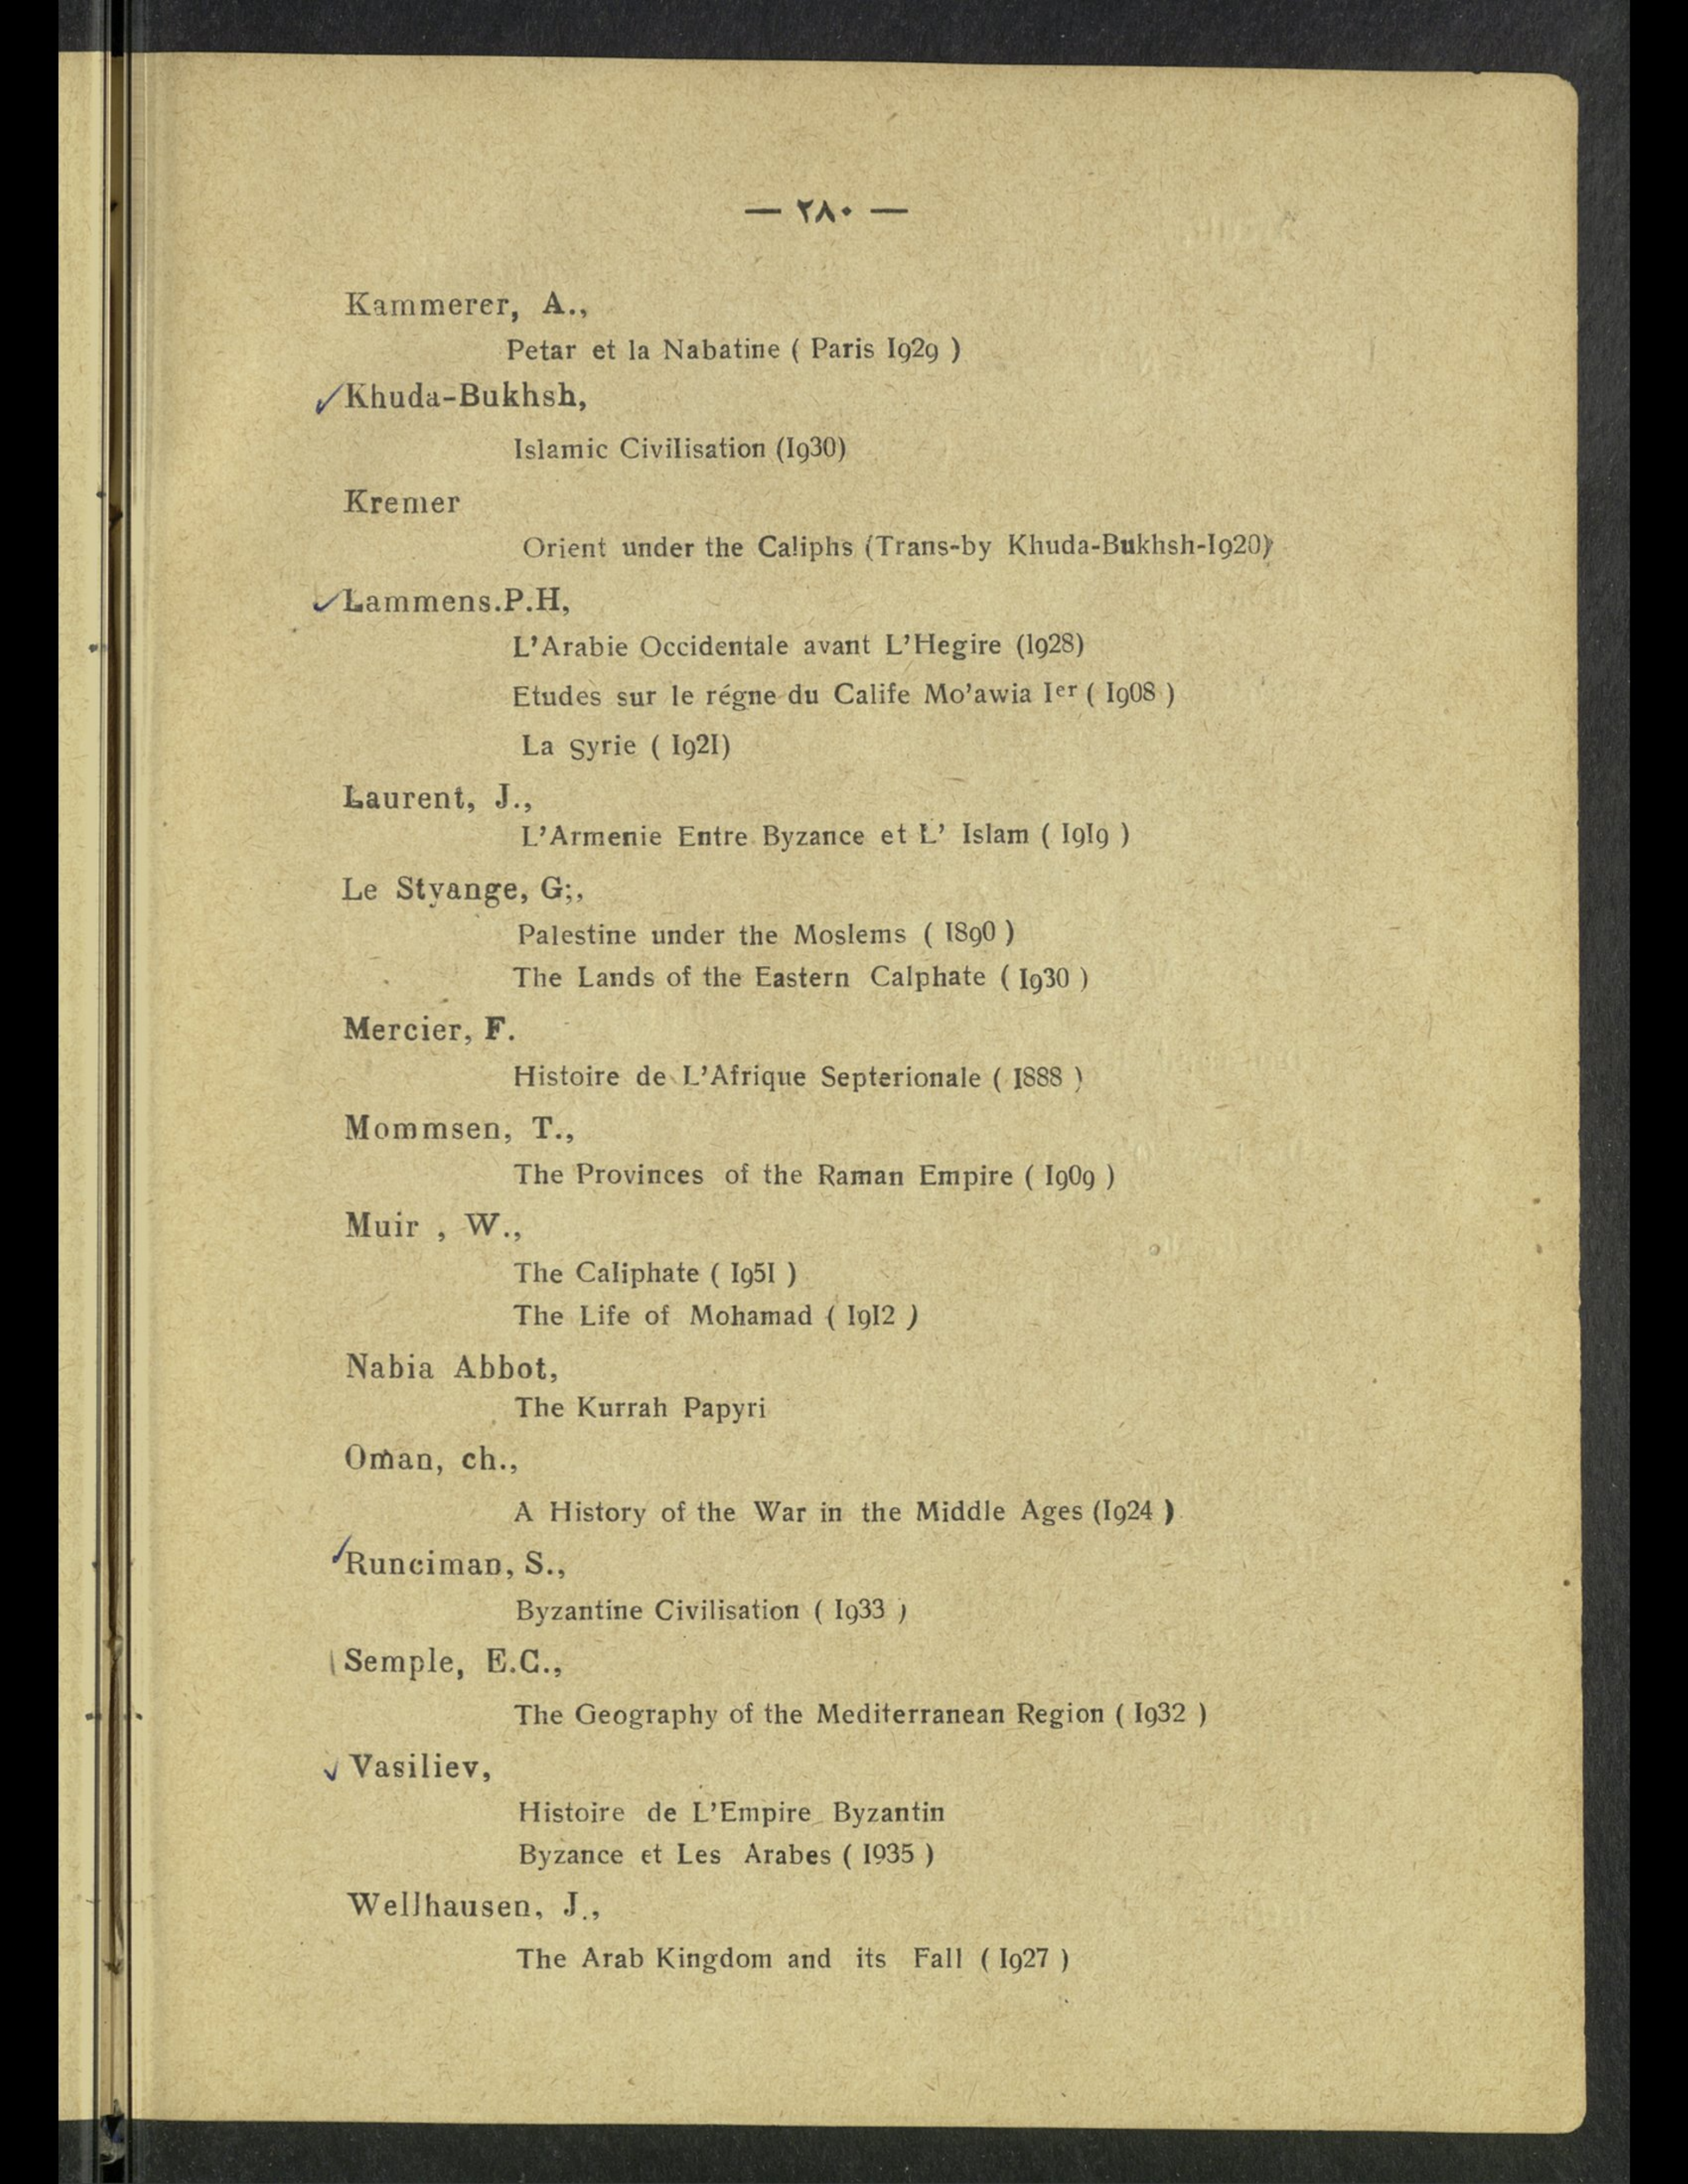 — ٢٨٠ —
Kammerer, A.,
Petar et la Nabatine ( Paris I929 )
Khuda-Bukhsh,
Islamic Civilisation (I930)
Kremer
Orient under the Caliphs (Trans-by Khuda-Bukhsh-I920)
Lammens.P.H,
L'Arabie Occidentale avant L'Hegire (1928)
Etudes sur le régne du Calife Mo'awia Ier ( I908 )
La Syrie ( I92I)
Laurent, J.,
L'Armenie Entre Byzance et L' Islam ( I9I9 )
Le Styange, G;,
Palestine under the Moslems ( I890 )
The Lands of the Eastern Calphate ( I930 )
Mercier, F.
Histoire de L'Afrique Septerionale ( I888 )
Mommsen, T.,
The Provinces of the Raman Empire ( I909 )
Muir , W.,
The Caliphate ( I95I )
The Life of Mohamad ( I9I2 )
Nabia Abbot,
The Kurrah Papyri
Oman, ch.,
A History of the War in the Middle Ages (I924 )
Runciman, S.,
Byzantine Civilisation ( I933 )
Semple, E.C.,
The Geography of the Mediterranean Region ( I932 )
Vasiliev,
Histoire de L'Empire Byzantin
Byzance et Les Arabes ( I935 )
Wellhausen, J.,
The Arab Kingdom and its Fall ( I927 )